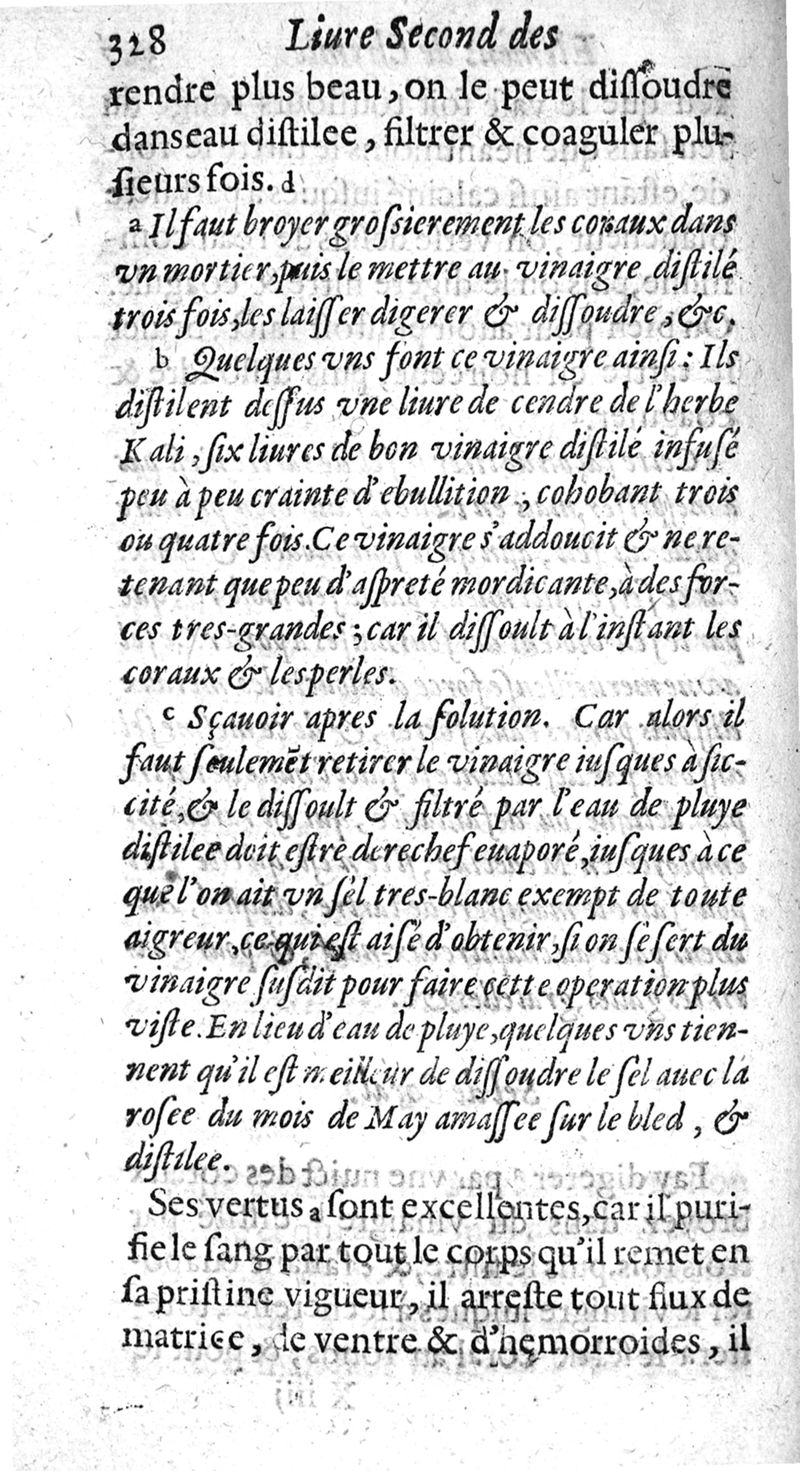 328 Liure Second des
rendre plus beau, on le peut diſſoudre
dans eau diſtilee, filtrer & coaguler plu-
ſieurs fois. d
a Il faut broyer groſsierement les coraux dans
vn mortier, puis le mettre au vinaigre diſtilé
trois fois, les laiſſer digerer & diſſoudre, &c.
b Quelques vns font ce vinaigre ainſi: Ils
diſtilent deſſus vne liure de cendre de l'herbe
Kali, ſix liures de bon vinaigre diſtilé infuſé
peu à peu crainte d'ebullition, cohobant trois
ou quatre fois. Ce vinaigre s'addoucit & ne re-
tenant que peu d'aſpreté mordicante, à des for-
ces tres-grandes; car il diſſoult à l'inſtant les
coraux & les perles.
c Sçauoir apres la ſolution. Car alors il
faut ſeulemẽt retirer le vinaigre iuſques à ſic-
cité, & le diſſoult & filtré par l'eau de pluye
diſtilee doit eſtre derechef euaporé, iuſques à ce
que l'on ait vn ſel tres-blanc exempt de toute
aigreur, ce qui eſt aiſé d'obtenir, ſi on ſe ſert du
vinaigre ſuſdit pour faire cette operation plus
viſte. En lieu d'eau de pluye, quelques vns tien-
nent qu'il eſt meilleur de diſſoudre le ſel auec la
roſee du mois de May amaſſee ſur le bled, &
diſtilee.
Ses vertus a ſont excellentes, car il puri-
fie le ſang par tout le corps qu'il remet en
ſa priſtine vigueur, il arreſte tout flux de
matrice, de ventre & d'hęmorroides, il